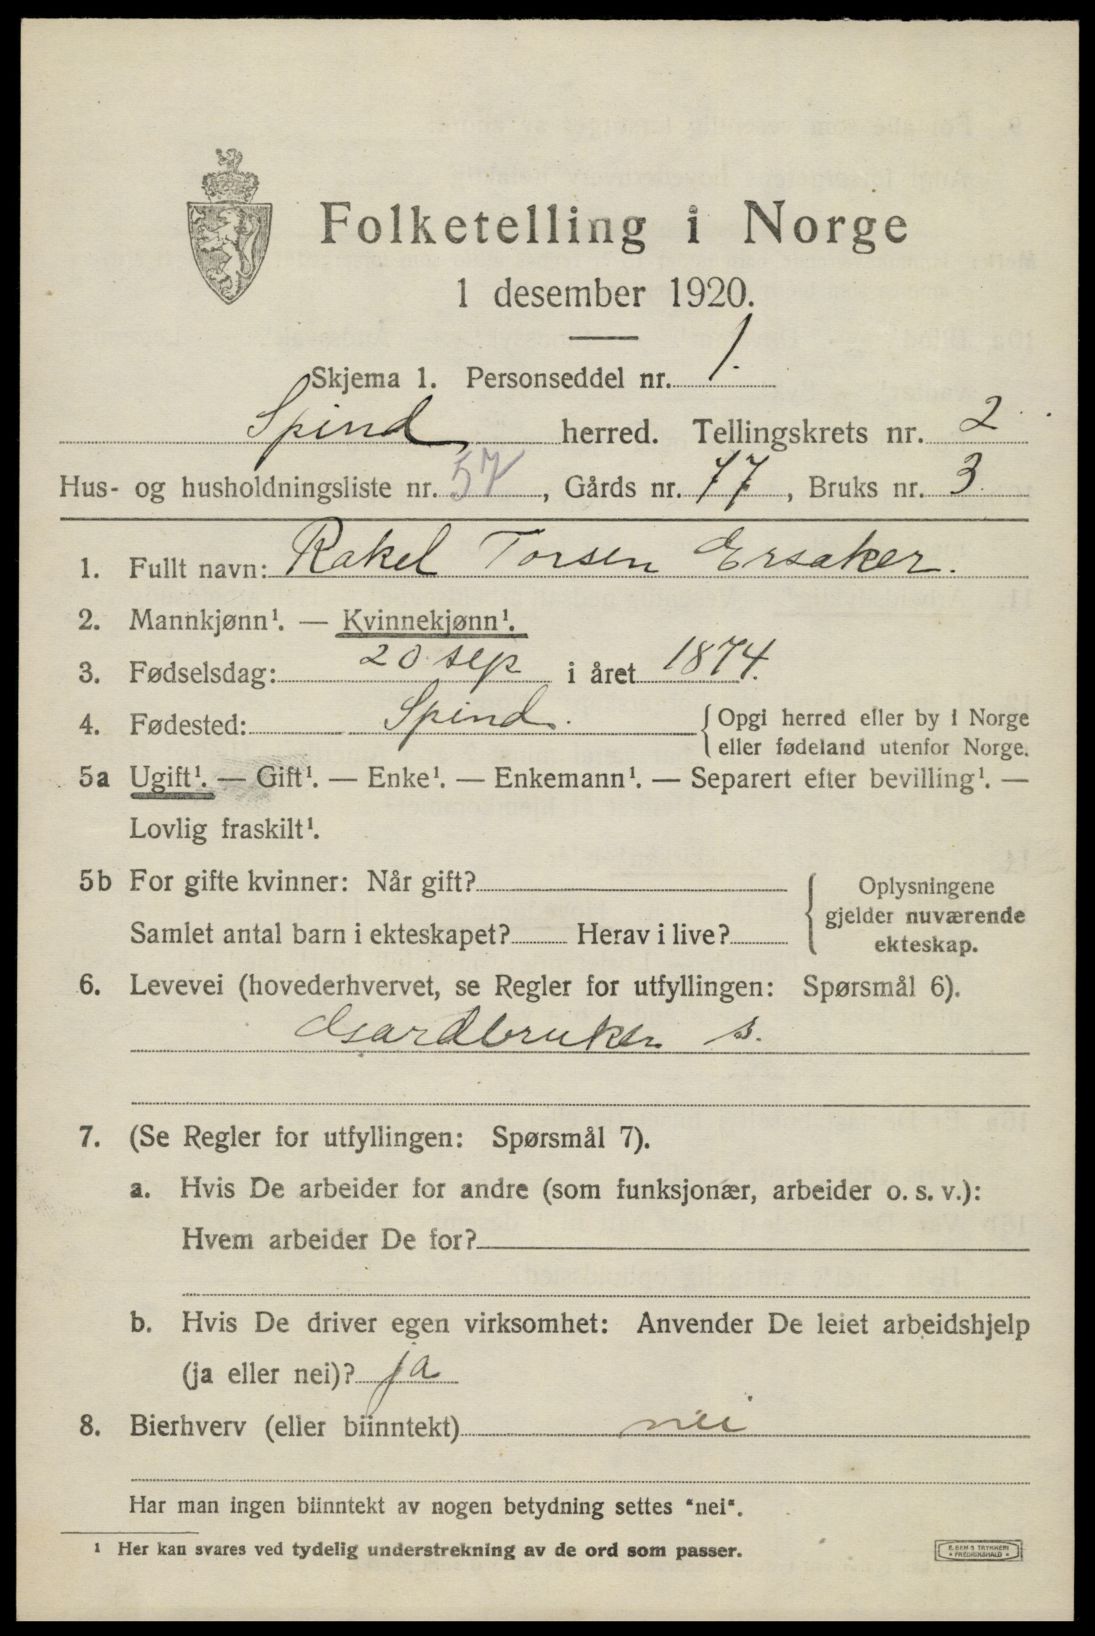 Folketelling i Norge
1 desember 1920.
Skjema 1. Personseddel nr. 1.
Spind herred. Tellingskrets nr. 2
Hus- og husholdningsliste nr. 57, Gårds nr. 17, Bruks nr. 3
1. Fullt navn: Rakel Torsen Ersaker.
2. Mannkjønn¹. — Kvinnekjønn¹.
3. Fødselsdag: 20 sep i året 1874.
4. Fødested: Spind. { Opgi herred eller by i Norge
eller fødeland utenfor Norge.
5a Ugift¹. — Gift¹. — Enke¹. — Enkemann¹. — Separert efter bevilling¹. —
Lovlig fraskilt¹.
5b For gifte kvinner: Når gift? { Oplysningene
gjelder nuværende
ekteskap.
Samlet antal barn i ekteskapet? Herav i live?
6. Levevei (hovederhvervet, se Regler for utfyllingen: Spørsmål 6).
Gardbruker s.
7. (Se Regler for utfyllingen: Spørsmål 7).
a. Hvis De arbeider for andre (som funksjonær, arbeider o. s. v.):
Hvem arbeider De for?
b. Hvis De driver egen virksomhet: Anvender De leiet arbeidshjelp
(ja eller nei)? ja
8. Bierhverv (eller biinntekt) nei
Har man ingen biinntekt av nogen betydning settes "nei".
¹ Her kan svares ved tydelig understrekning av de ord som passer.
E. SEM'S TRYKKERI
• FREDRIKSHALD •